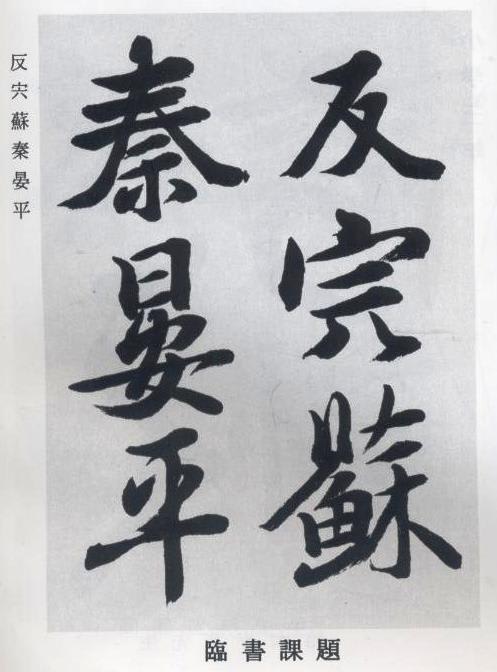 反宍蘇
秦晏平
反宍蘇秦晏平
臨書課題